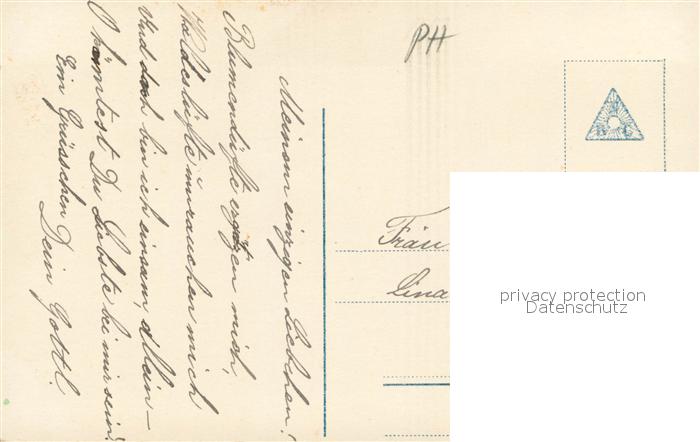 Meinem einzigen Liebchen!
Blumendüfte ergötzen mich,
Waldeslüfte umrauschen mich
Und doch bin ich einsam, allein –
O könntest Du Liebste bei mir sein!
Ein Grüsschen Dein Gottl.
PH
Fräu
Lina
privacy protection
Datenschutz